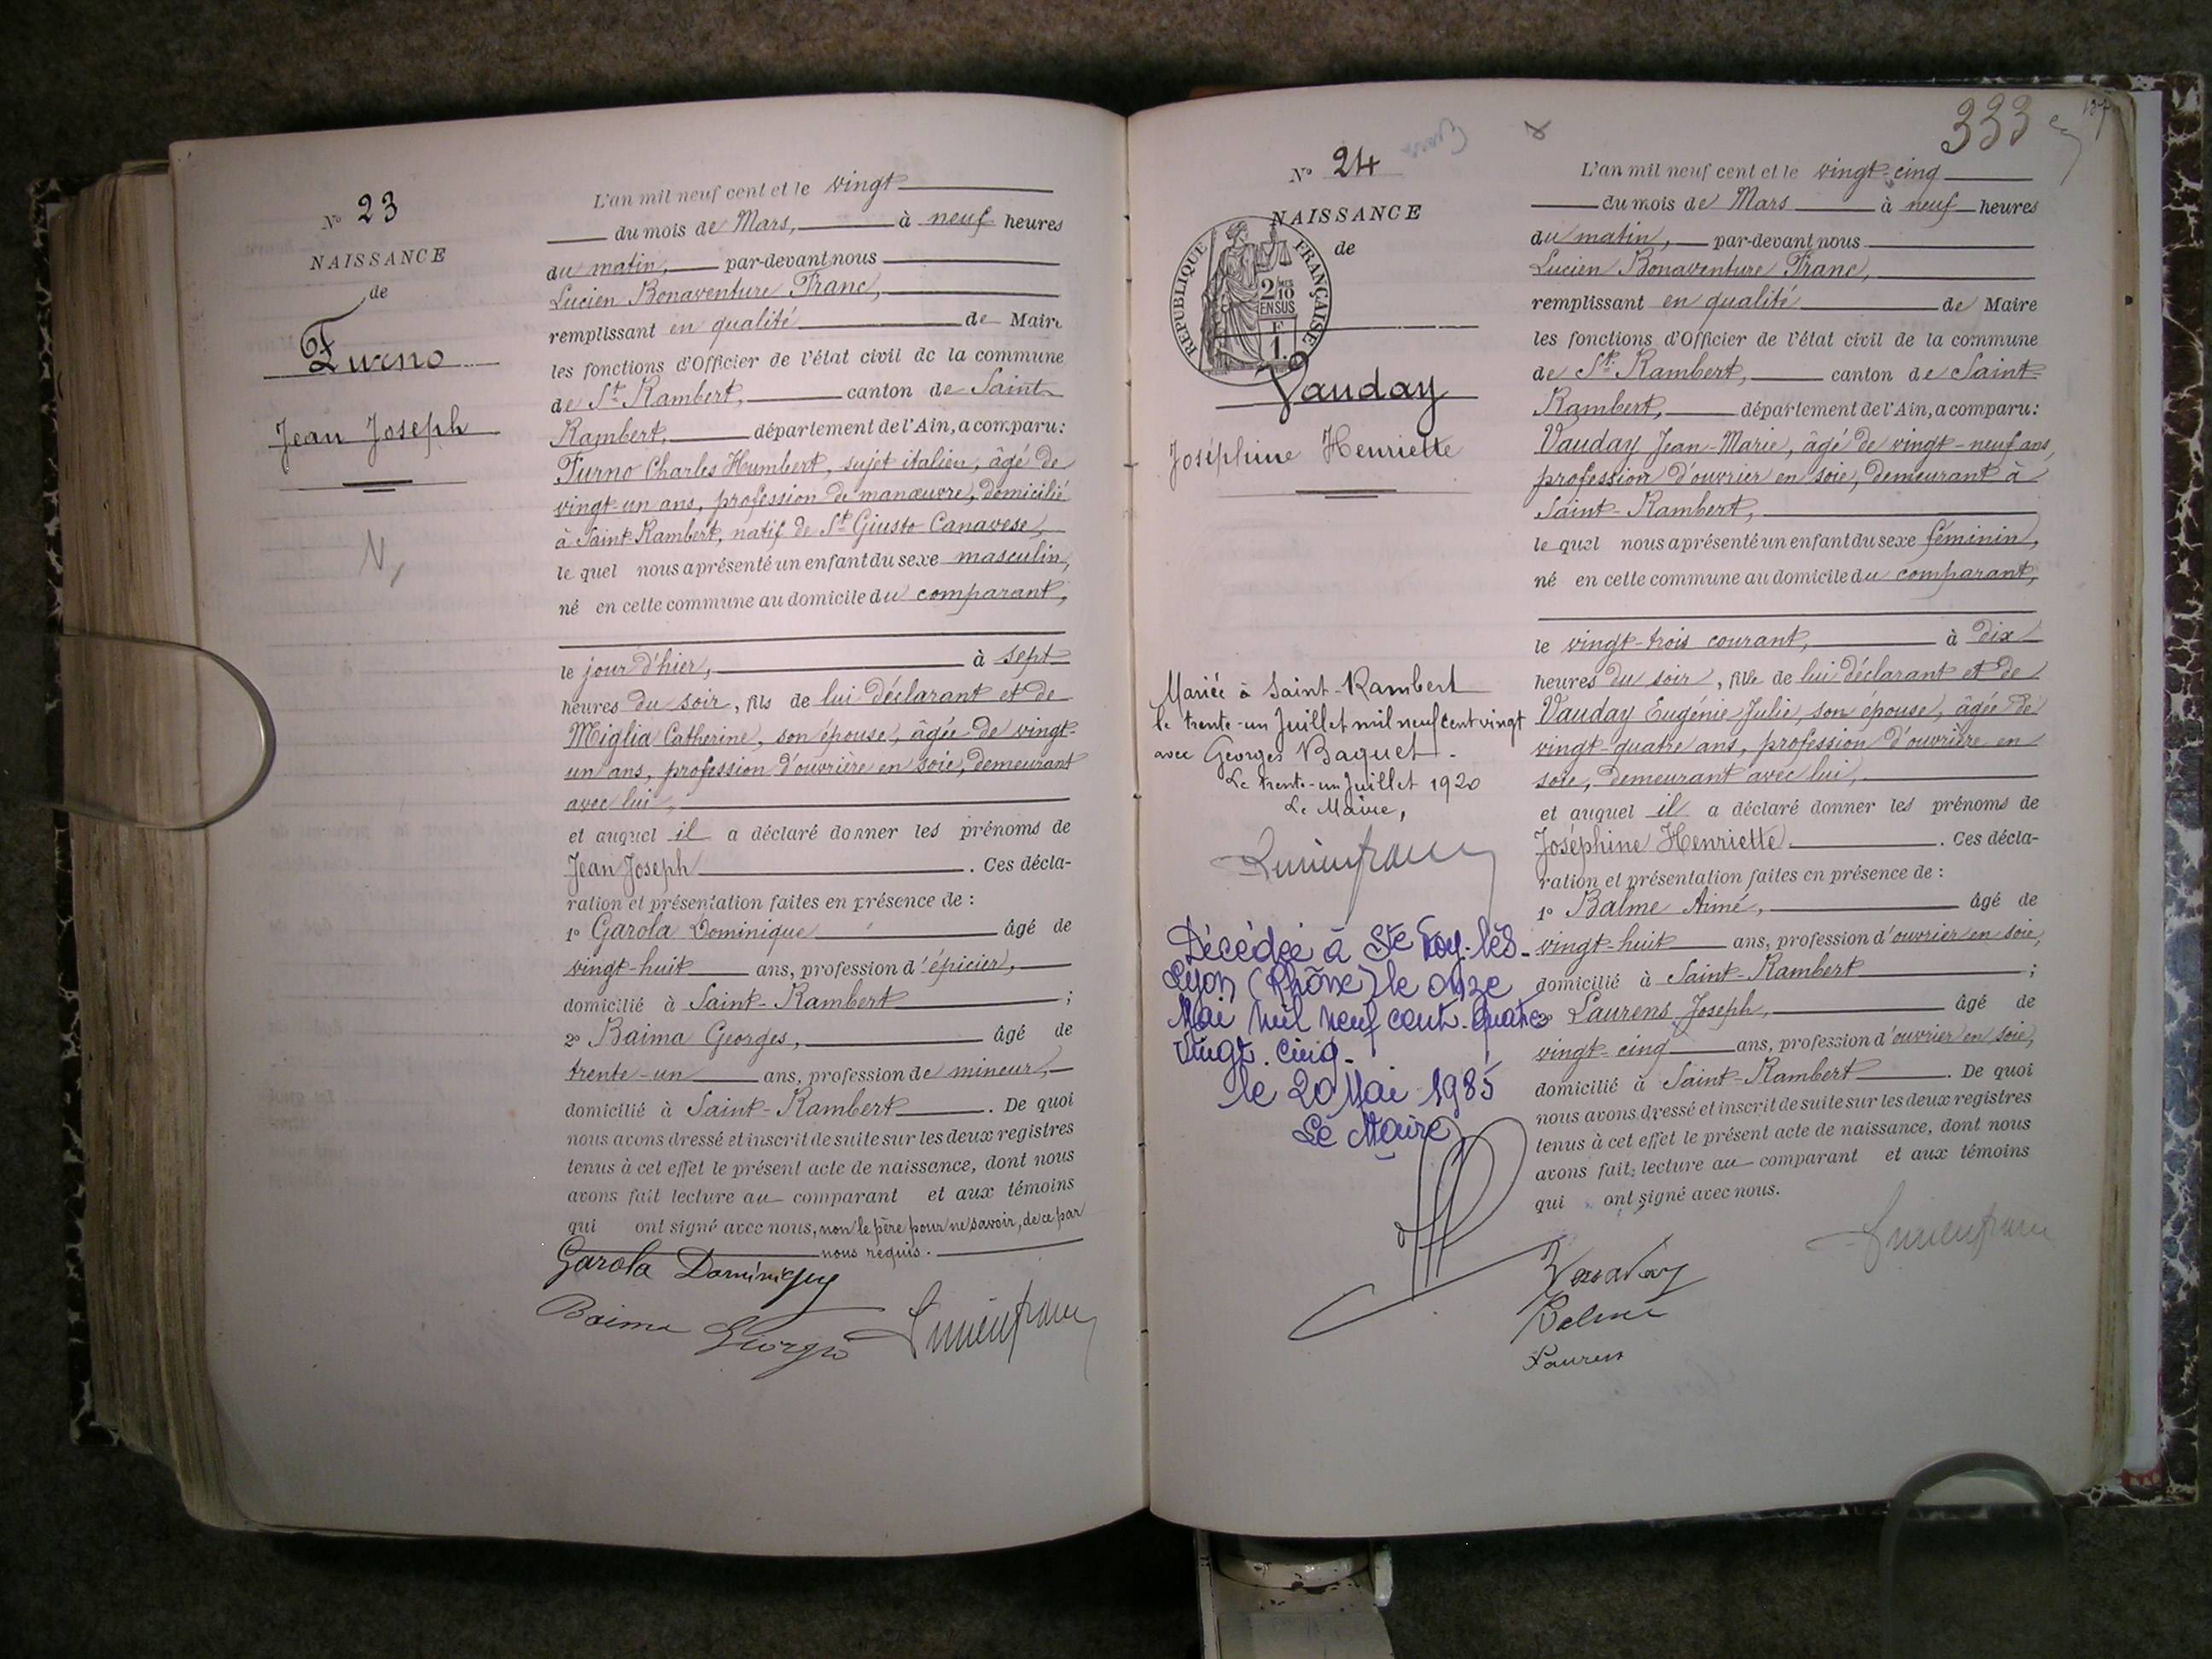 N° 23
NAISSANCE
de
Furno
Jean Joseph
L'an mil neuf cent et le vingt
du mois de Mars, à neuf heures
du matin, par-devant nous
Lucien Bonaventure Franc,
remplissant en qualité de Maire
les fonctions d'Officier de l'état civil de la commune
de St Rambert, canton de Saint-
Rambert, département de l'Ain, a comparu:
Furno Charles Humbert, sujet italien, âgé de
vingt-un ans, profession de manœuvre, domicilié
à Saint-Rambert, natif de St Giusto Canavese,
le quel nous a présenté un enfant du sexe masculin,
né en cette commune au domicile du comparant,
le jour d'hier, à sept
heures du soir, fils de lui déclarant et de
Miglia Catherine, son épouse, âgée de vingt-
un ans, profession d'ouvrière en soie, demeurant
avec lui,
et auquel il a déclaré donner les prénoms de
Jean Joseph. Ces décla-
ration et présentation faites en présence de :
1° Garola Dominique âgé de
vingt-huit ans, profession d'épicier,
domicilié à Saint-Rambert ;
2° Baima Georges, âgé de
trente-un ans, profession de mineur,
domicilié à Saint-Rambert. De quoi
nous avons dressé et inscrit de suite sur les deux registres
tenus à cet effet le présent acte de naissance, dont nous
avons fait lecture au comparant et aux témoins
qui ont signé avec nous, non le père pour ne savoir, de ce par
nous requis.
Garola Dominique
Baima Giorgio Lucien franc
333
N° 24
NAISSANCE
de
RÉPUBLIQUE FRANÇAISE
2/10MES
EN SUS
F
1.
Vauday
Joséphine Henriette
Mariée à Saint-Rambert
le trente-un Juillet mil neuf cent vingt
avec Georges Baquet.
Le trente-un Juillet 1920
Le Maire,
Lucien franc
Décédée à Ste Foy-lès-
Lyon (Rhône) le onze
Mai mil neuf cent quatre
vingt-cinq-
le 20 Mai 1985
Le Maire
L'an mil neuf cent et le vingt-cinq
du mois de Mars à neuf heures
du matin, par-devant nous
Lucien Bonaventure Franc,
remplissant en qualité de Maire
les fonctions d'Officier de l'état civil de la commune
de St Rambert, canton de Saint-
Rambert, département de l'Ain, a comparu:
Vauday Jean-Marie, âgé de vingt-neuf ans,
profession d'ouvrier en soie, demeurant à
Saint-Rambert,
le quel nous a présenté un enfant du sexe féminin,
né en cette commune au domicile du comparant,
le vingt-trois courant, à dix
heures du soir, fille de lui déclarant et de
Vauday Eugénie Julie, son épouse, âgée de
vingt-quatre ans, profession d'ouvrière en
soie, demeurant avec lui,
et auquel il a déclaré donner les prénoms de
Joséphine Henriette. Ces décla-
ration et présentation faites en présence de :
1° Balme Aimé, âgé de
vingt-huit ans, profession d'ouvrier en soie,
domicilié à Saint-Rambert ;
2° Laurens Joseph, âgé de
vingt-cinq ans, profession d'ouvrier en soie,
domicilié à Saint-Rambert. De quoi
nous avons dressé et inscrit de suite sur les deux registres
tenus à cet effet le présent acte de naissance, dont nous
avons fait lecture au comparant et aux témoins
qui ont signé avec nous.
Lucien franc
Vauday
Balme
Laurens